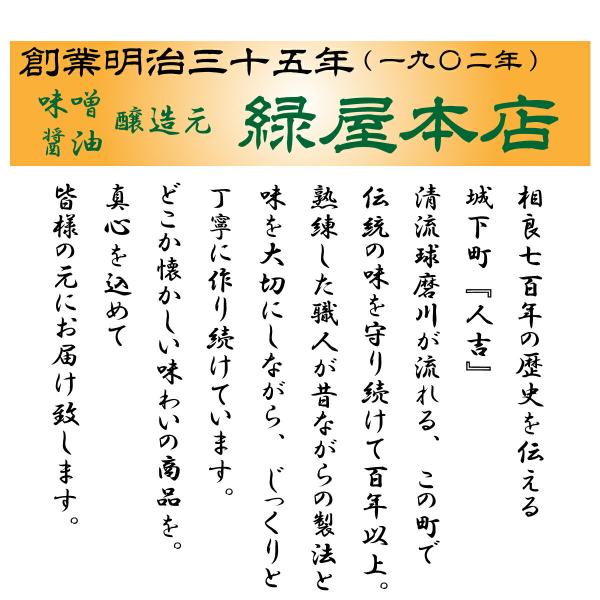 創業明治三十五年(一九〇二年)
味噌
醤油
醸造元
緑屋本店
相良七百年の歴史を伝える
城下町『人吉』
清流球磨川が流れる、この町で
伝統の味を守り続けて百年以上。
熟練した職人が昔ながらの製法と
味を大切にしながら、じっくりと
丁寧に作り続けています。
どこか懐かしい味わいの商品を。
真心を込めて
皆様の元にお届け致します。